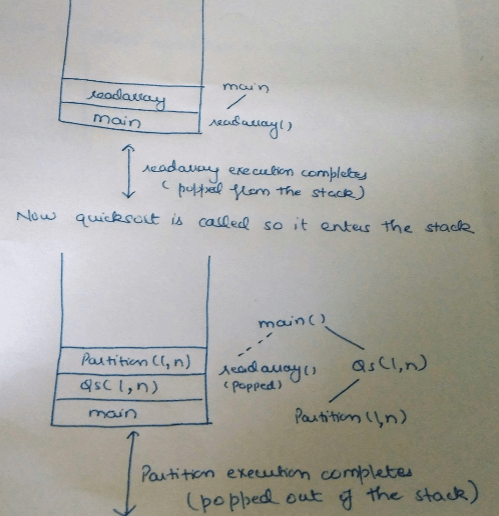 readarray
main
main
readarray()
readarray execution completes
(popped from the stack)
Now quicksort is called so it enters the stack
Partition(1,n)
Qs(1,n)
main
main()
readarray()
(popped)
Qs(1,n)
Partition(1,n)
Partition execution completes
(popped out of the stack)